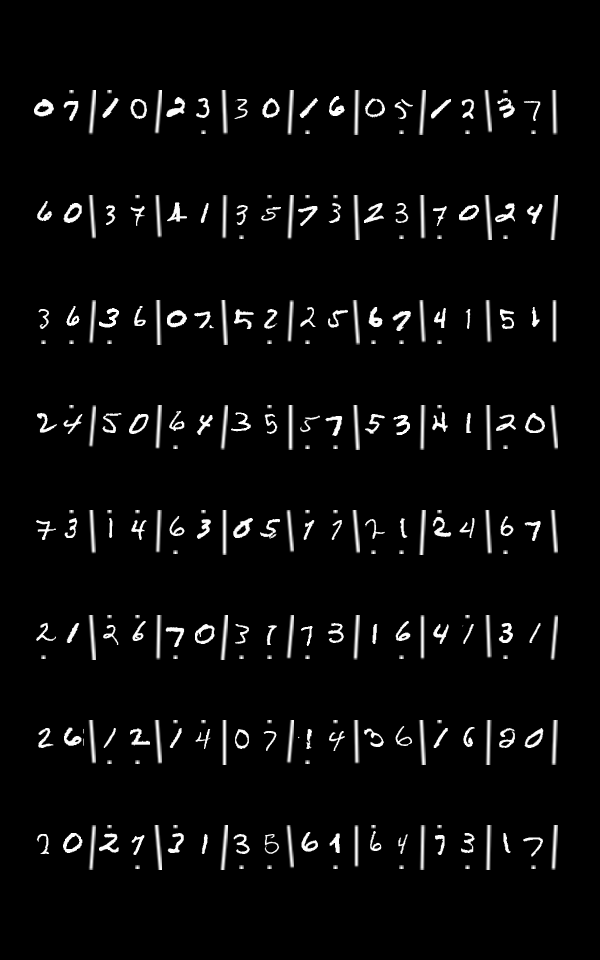 0 7̇ | 1̇ 0 | 2 3̣ | 3 0 | 1̣ 6 | 0 5̣ | 1 2̣ | 3̇ 7̣ |
6 0 | 3 7̇ | 4 1 | 3̣ 5̇ | 7̇ 3̇ | 2 3̣ | 7̣ 0 | 2̣ 4 |
3̣ 6̣ | 3̣ 6 | 0 7 | 5 2̇ | 2̣ 5 | 6̣ 7̣ | 4̣ 1 | 5 1 |
2 4̇ | 5 0 | 6̣ 4 | 3 5̇ | 5̣ 7̣ | 5 3 | 4̇ 1 | 2̣ 0 |
7 3̇ | 1̇ 4̇ | 6̣ 3̇ | 0 5 | 7̇ 7̇ | 2̣ 1̣ | 2̇ 4 | 6̣ 7 |
2̣ 1 | 2̇ 6̇ | 7̣ 0 | 3̣ 7̣ | 7̣ 3 | 1 6̣ | 4 1̇ | 3̣ 1 |
2 6 | 1̣ 2̣ | 1̇ 4̇ | 0 7̇ | 1̣ 4̇ | 3 6 | 1̇ 6 | 2 0 |
2 0 | 2̇ 7̣ | 3̇ 1 | 3̣ 5̣ | 6 1̣ | 6̇ 4̣ | 7̇ 3̣ | 1 7̣ |